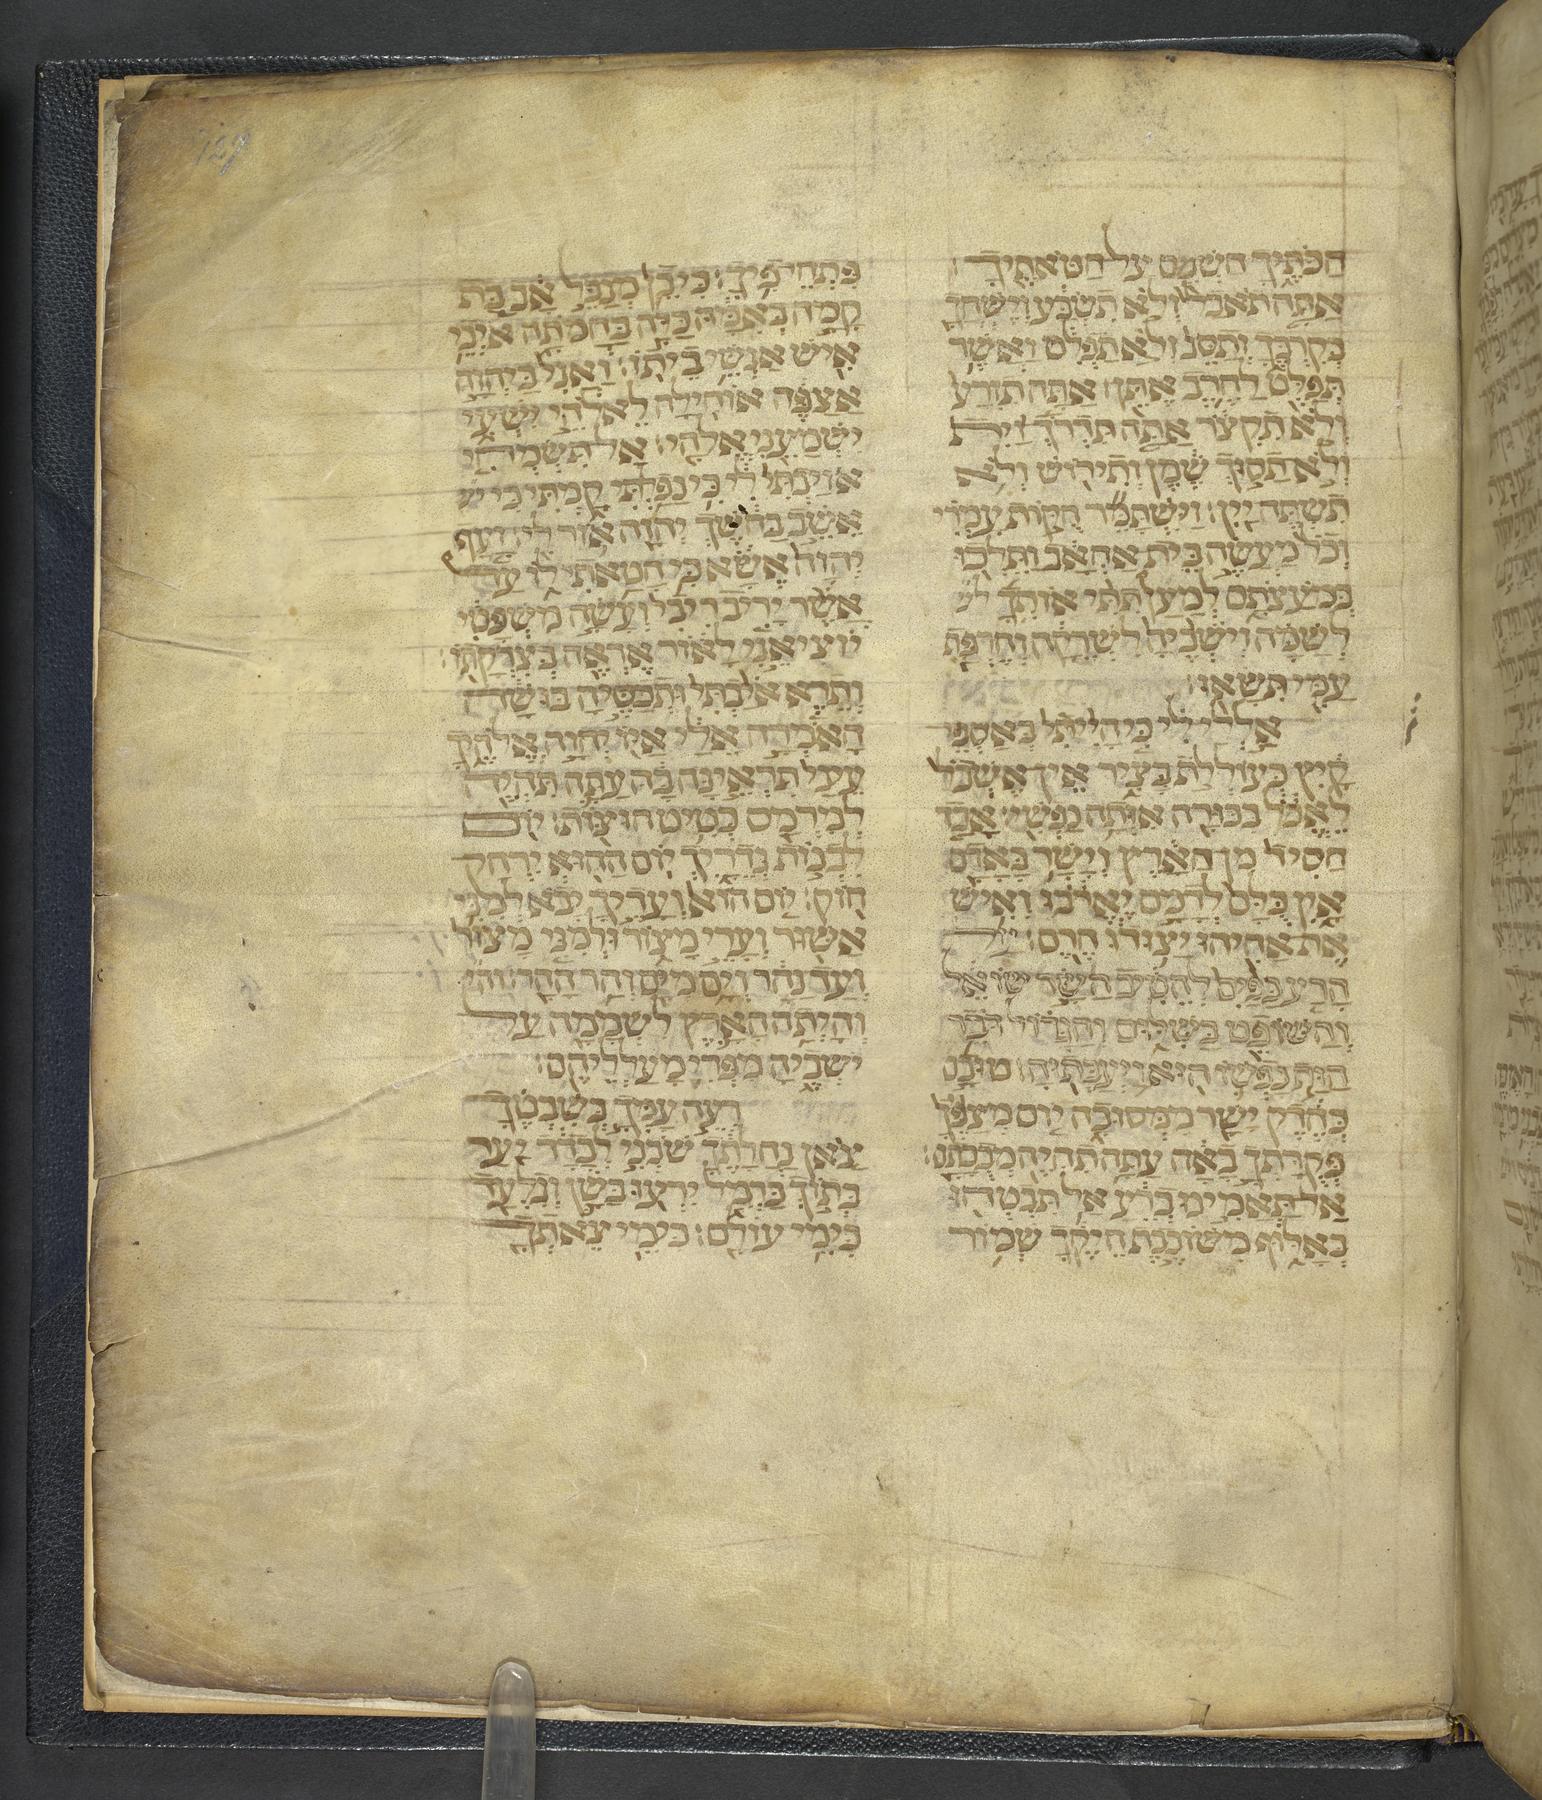 הכתיך השמם על חטאתיך׃
אתה תאכל ולא תשבע וישחך
בקרבך ותסג ולא תפלט ואשר
תפלט לחרב אתן׃ אתה תזרע
ולא תקצר אתה תדרך זית
ולא תסוך שמן ותירוש ולא
תשתה יין׃ וישתמר חקות עמרי
וכל מעשה בית אחאב ותלכו
במעצתם למען תתי אותך לש
לשמה וישביה לשרקה וחרפת
עמי תשאו׃
אללי לי כי הייתי כאספי
קיץ כעוללת בציר אין אשכול
לאכל בכורה אותה נפשי׃ אבד
חסיד מן הארץ וישר באדם
אין כלם לדמים יארבו ואיש
את אחיהו יצודו חרם׃ על
הרע כפים להטיב השר שואל
והשופט בשלום והגדול דבר
הות נפשו הוא ויעבתיה׃ טובם
כחדק ישר ממסוכה יום מצפיך
פקדתך באה עתה תהיה מבכתם׃
אל תאמינו ברע אל תבטחו
באלוף משוכבת חיקך שמור
פתחי פיך׃ כי בן מנבל אב בת
קמה באמה כלה בחמתה איבי
איש אנשי ביתו׃ ואני ביהוה
אצפה אוחילה לאלהי ישעי
ישמעני אלהי׃ אל תשמחי
איבתי לי כי נפלתי קמתי כי
אשב בחשך יהוה אור לי׃ זעף
יהוה אשא כי חטאתי לו עד
אשר יריב ריבי ועשה משפטי
יוציאני לאור אראה בצדקתו׃
ותרא איבתי ותכסיה בושה
האמרה אלי איו יהוה אלהיך
עיני תראינה בה עתה תהיה
למרמס כטיט חוצות׃ יום
לבנות גדריך יום ההוא ירחק
חוק׃ יום הוא ועדיך יבוא למני
אשור וערי מצור ולמני מצור
ועד נהר וים מים והר ההר׃
והיתה הארץ לשממה על
ישביה מפרי מעלליהם׃
רעה עמך בשבטך
צאן נחלתך שכני לבדד יער
בתוך כרמל ירעו בשן וגלעד
כימי עולם׃ כימי צאתך